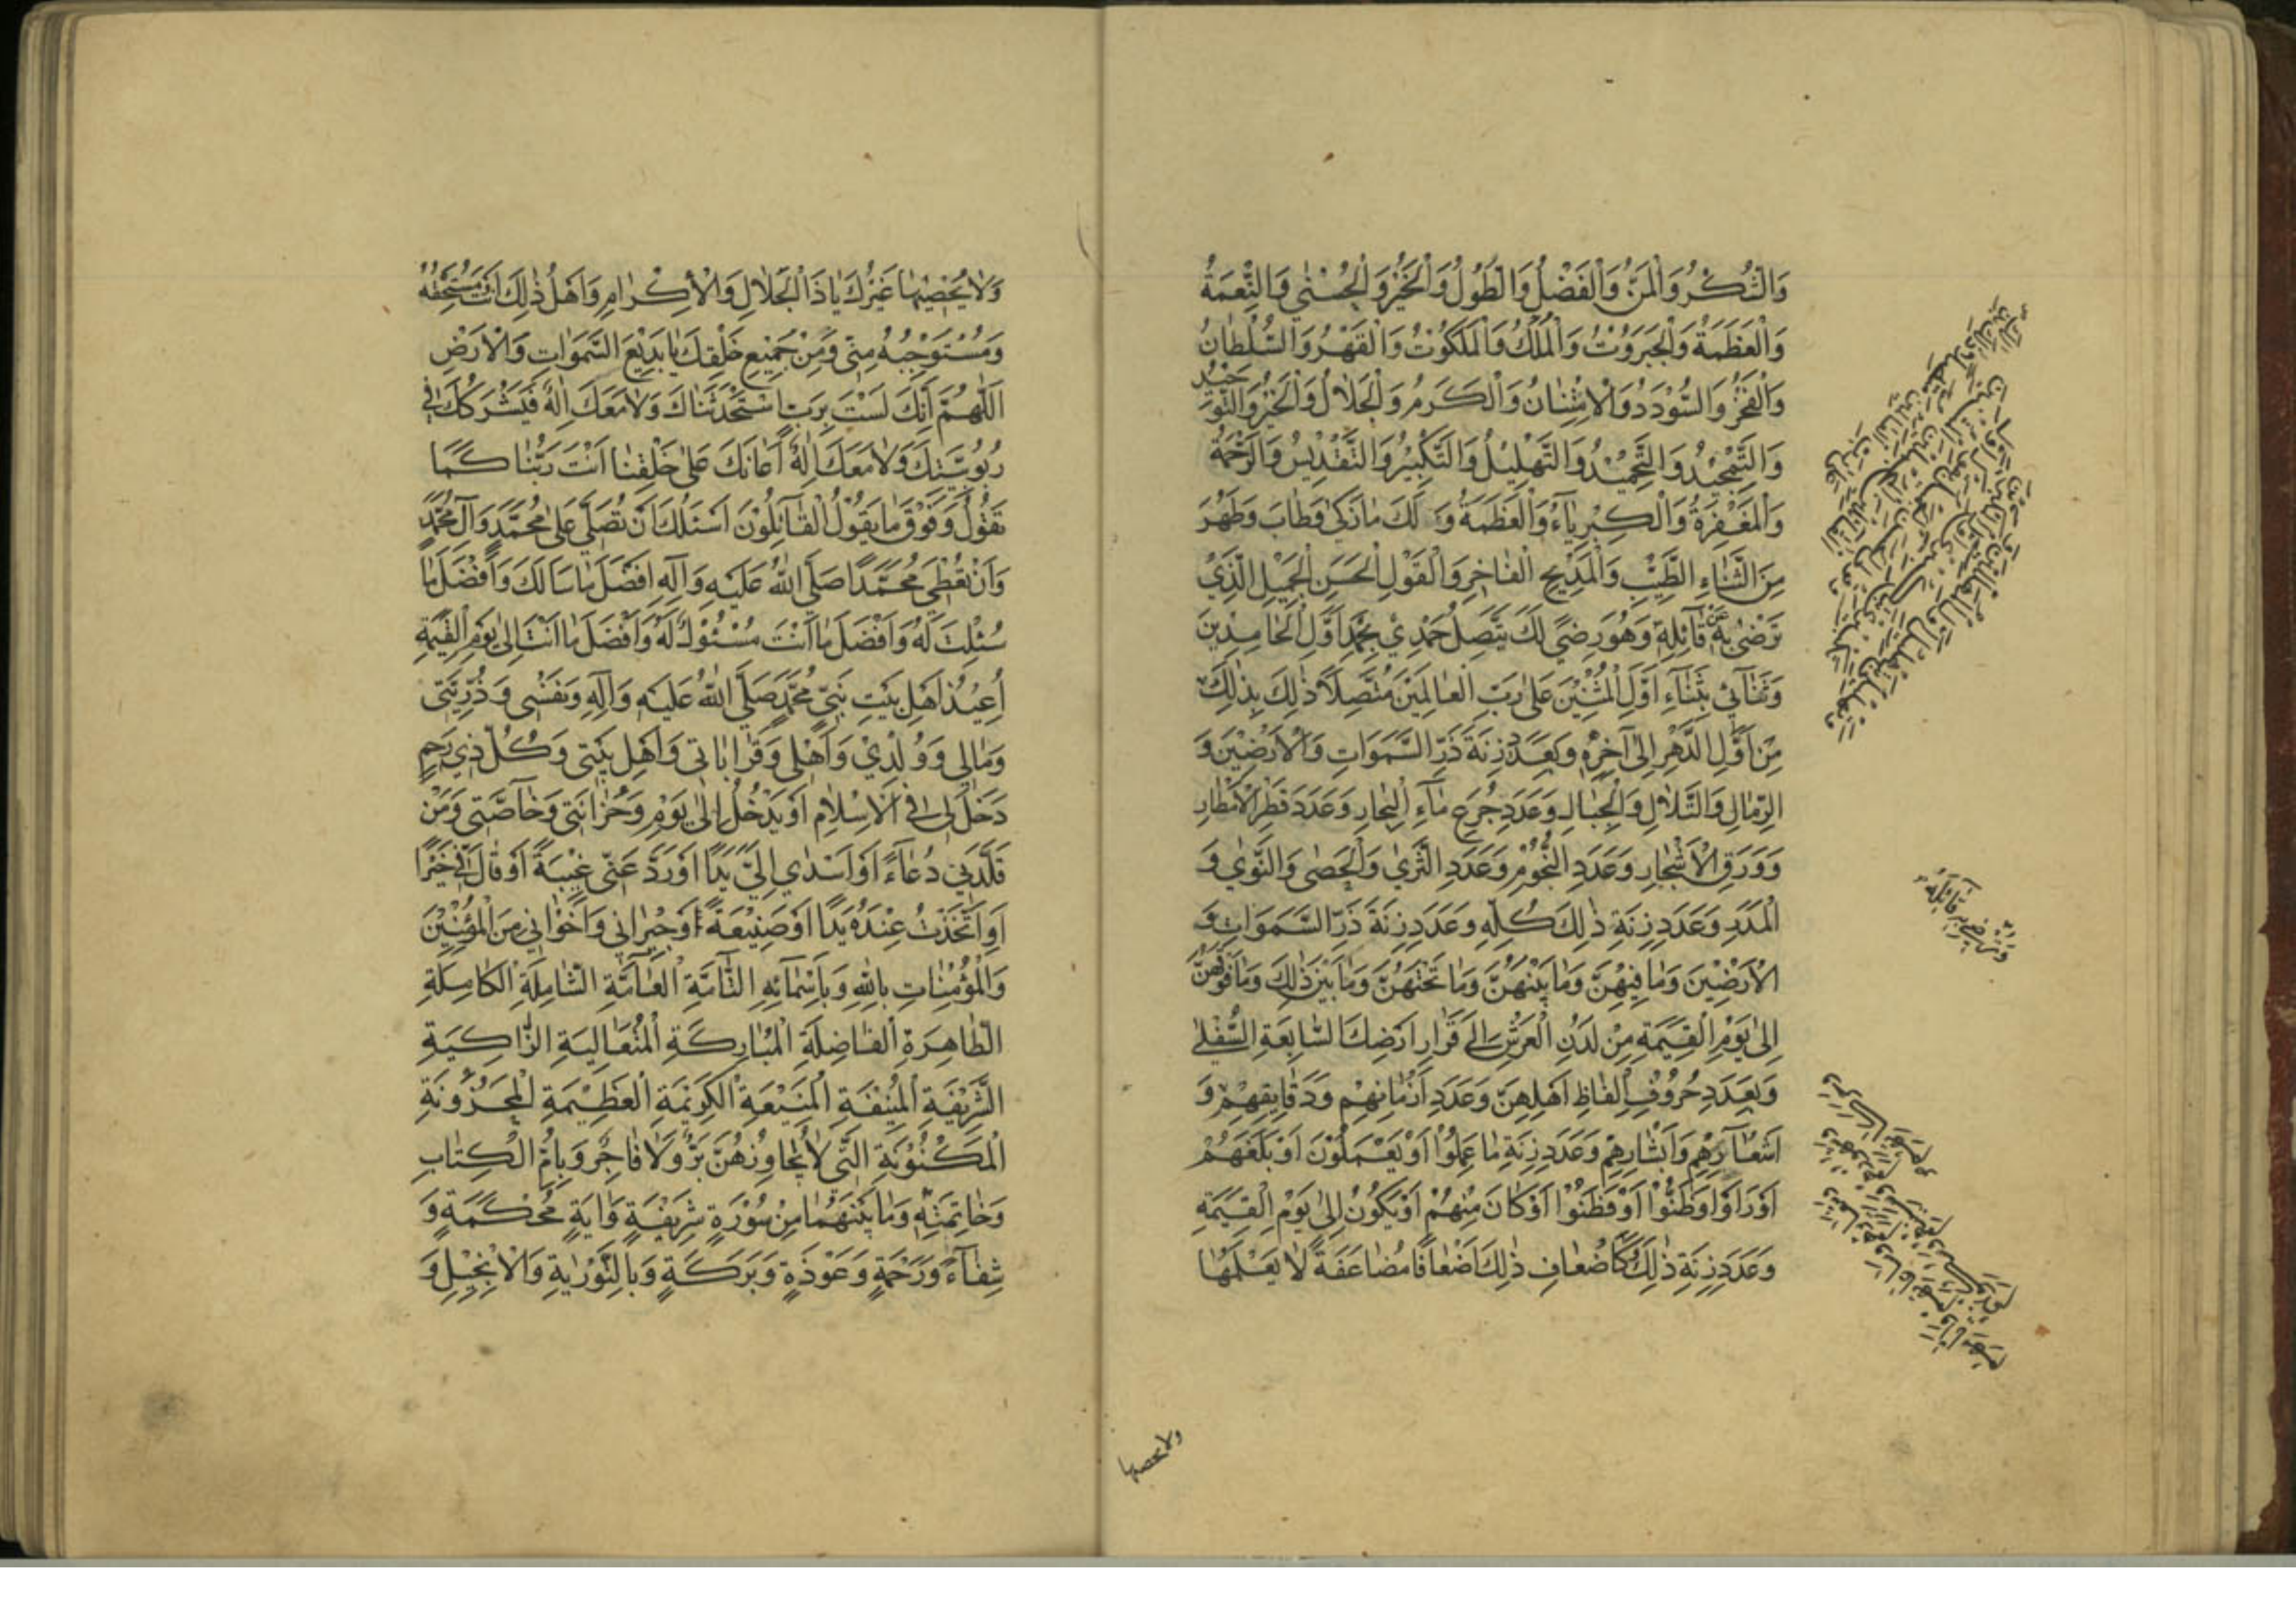 وَالشُّكْرُ وَالْمَنُّ وَالْفَضْلُ وَالطَّوْلُ وَالْخَيْرُ وَالْحُسْنٰى وَالنِّعْمَةُ
وَالْعَظَمَةُ وَالْجَبَرُوْتُ وَالْمُلْكُ وَالْمَلَكُوْتُ وَالْقَهْرُ وَالسُّلْطَانُ
وَالْفَخْرُ وَالسُّوْدَدُ وَالْاِمْتِنَانُ وَالْكَرَمُ وَالْجَلَالُ وَالْخَيْرُ وَالتَّوْحِيْدُ
وَالتَّمْجِيْدُ وَالتَّحْمِيْدُ وَالتَّهْلِيْلُ وَالتَّكْبِيْرُ وَالتَّقْدِيْسُ وَالرَّحْمَةُ
وَالْمَغْفِرَةُ وَالْكِبْرِيَآءُ وَالْعَظَمَةُ وَ لَكَ مَا زَكٰى وَطَابَ وَطَهُرَ
مِنَ الثَّنَاءِ الطَّيِّبِ وَالْمَدِيْحِ الْفَاخِرِ وَالْقَوْلِ الْحَسَنِ الْجَمِيْلِ الَّذِيْ
تَرْضٰى بِهٖ عَنْ قَآئِلِهٖ وَهُوَ رِضًى لَكَ يَتَّصِلُ حَمْدِيْ بِحَمْدِ اَوَّلِ الْحَامِدِيْنَ
وَثَنَآئِيْ بِثَنَاءِ اَوَّلِ الْمُثْنِيْنَ عَلٰى رَبِّ الْعَالَمِيْنَ مُتَّصِلًا ذٰلِكَ بِذٰلِكَ
مِنْ اَوَّلِ الدَّهْرِ اِلٰى آخِرِهٖ وَبِعَدَدِ زِنَةِ ذَرِّ السَّمٰوَاتِ وَالْاَرَضِيْنَ وَ
الرِّمَالِ وَالتِّلَالِ وَالْجِبَالِ وَعَدَدِ جُرَعِ مَآءِ الْبِحَارِ وَعَدَدِ قَطْرِ الْاَمْطَارِ
وَوَرَقِ الْاَشْجَارِ وَعَدَدِ النُّجُوْمِ وَعَدَدِ الثَّرٰى وَالْحَصٰى وَالنَّوٰى وَ
الْمَدَرِ وَعَدَدِ زِنَةِ ذٰلِكَ كُلِّهٖ وَعَدَدِ زِنَةِ ذَرِّ السَّمٰوَاتِ وَ
الْاَرَضِيْنَ وَمَا فِيْهِنَّ وَمَا بَيْنَهُنَّ وَمَا تَحْتَهُنَّ وَمَا بَيْنَ ذٰلِكَ وَمَا فَوْقَهُنَّ
اِلٰى يَوْمِ الْقِيٰمَةِ مِنْ لَدُنِ الْعَرْشِ اِلٰى قَرَارِ اَرْضِكَ السَّابِعَةِ السُّفْلٰى
وَبِعَدَدِ حُرُوْفِ اَلْفَاظِ اَهْلِهِنَّ وَعَدَدِ اَزْمَانِهِمْ وَدَقَايِقِهِمْ وَ
اَشْعَآرِهِمْ وَاَبْشَارِهِمْ وَعَدَدِ زِنَةِ مَا عَمِلُوْا اَوْ يَعْمَلُوْنَ اَوْ بَلَغَهُمْ
اَوْ رَاَوْا وَظَنُّوْا اَوْ فَطَنُوْا اَوْ كَانَ مِنْهُمْ اَوْ يَكُوْنُ اِلٰى يَوْمِ الْقِيٰمَةِ
وَعَدَدِ زِنَةِ ذٰلِكَ كَاَضْعَافِ ذٰلِكَ اَضْعَافًا مُضَاعَفَةً لَا يَعْلَمُهَا
وترضى به قائله
ولا يحصيها
وَلَا يُحْصِيْهَا غَيْرُكَ يَا ذَا الْجَلَالِ وَالْاِكْرَامِ وَاَهْلُ ذٰلِكَ اَنْتَ مُسْتَحِقُّهُ
وَمُسْتَوْجِبُهُ مِنِّي وَمِنْ جَمِيْعِ خَلْقِكَ يَا بَدِيْعَ السَّمٰوَاتِ وَالْاَرْضِ
اَللّٰهُمَّ اِنَّكَ لَسْتَ بِرَبٍّ اسْتَحْدَثْنَاكَ وَلَا مَعَكَ اِلٰهٌ فَيَشْرَكَكَ فِي
رُبُوْبِيَّتِكَ وَلَا مَعَكَ اِلٰهٌ اَعَانَكَ عَلٰى خَلْقِنَا اَنْتَ رَبُّنَا كَمَا
تَقُوْلُ وَفَوْقَ مَا يَقُوْلُ الْقَآئِلُوْنَ اَسْئَلُكَ اَنْ تُصَلِّيَ عَلٰى مُحَمَّدٍ وَآلِ مُحَمَّدٍ
وَاَنْ تُعْطِيَ مُحَمَّدًا صَلَّى اللّٰهُ عَلَيْهِ وَآلِهِ اَفْضَلَ مَا سَاَلَكَ وَاَفْضَلَ مَا
سُئِلْتَ لَهُ وَاَفْضَلَ مَا اَنْتَ مَسْئُوْلٌ لَهُ وَاَفْضَلَ مَا اَنْتَ اِلٰى يَوْمِ الْقِيٰمَةِ
اُعِيْذُ اَهْلَ بَيْتِ نَبِيِّ مُحَمَّدٍ صَلَّى اللّٰهُ عَلَيْهِ وَآلِهِ وَنَفْسِي وَذُرِّيَّتِي
وَمَالِي وَوُلْدِيْ وَاَهْلِي وَقَرَابَاتِي وَاَهْلِ بَيْتِي وَكُلَّ ذِيْ رَحِمٍ
دَخَلَ لِي فِي الْاِسْلَامِ اَوْ يَدْخُلُ اِلٰى يَوْمِ وَحُزَانَتِي وَخَآصَّتِي وَمَنْ
قَلَّدَنِي دُعَآءً اَوْ اَسْدٰى اِلَيَّ يَدًا اَوْ رَدَّ عَنِّي غِيْبَةً اَوْ قَالَ فِيَّ خَيْرًا
اَوِ اتَّخَذْتُ عِنْدَهُ يَدًا اَوْ صَنِيْعَةً اَوْ جِيْرَانِي وَاَخَوَانِي مِنَ الْمُؤْمِنِيْنَ
وَالْمُؤْمِنَاتِ بِاللّٰهِ وَبِاَسْمَآئِهِ التَّآمَّةِ الْعَآمَّةِ الشَّامِلَةِ الْكَامِلَةِ
الطَّاهِرَةِ الْفَاضِلَةِ الْمُبَارَكَةِ الْمُتَعَالِيَةِ الزَّاكِيَةِ
الشَّرِيْفَةِ الْمُنِيْفَةِ الْمَنِيْعَةِ الْكَرِيْمَةِ الْعَظِيْمَةِ الْمَخْزُوْنَةِ
الْمَكْنُوْنَةِ الَّتِي لَا يُجَاوِزُهُنَّ بَرٌّ وَلَا فَاجِرٌ وَبِاُمِّ الْكِتَابِ
وَخَاتِمَتِهِ وَمَا بَيْنَهُمَا مِنْ سُوْرَةٍ شَرِيْفَةٍ وَاٰيَةٍ مُحْكَمَةٍ وَ
شِفَآءٍ وَرَحْمَةٍ وَعَوْذَةٍ وَبَرَكَةٍ وَبِالتَّوْرٰيةِ وَالْاِنْجِيْلِ وَ